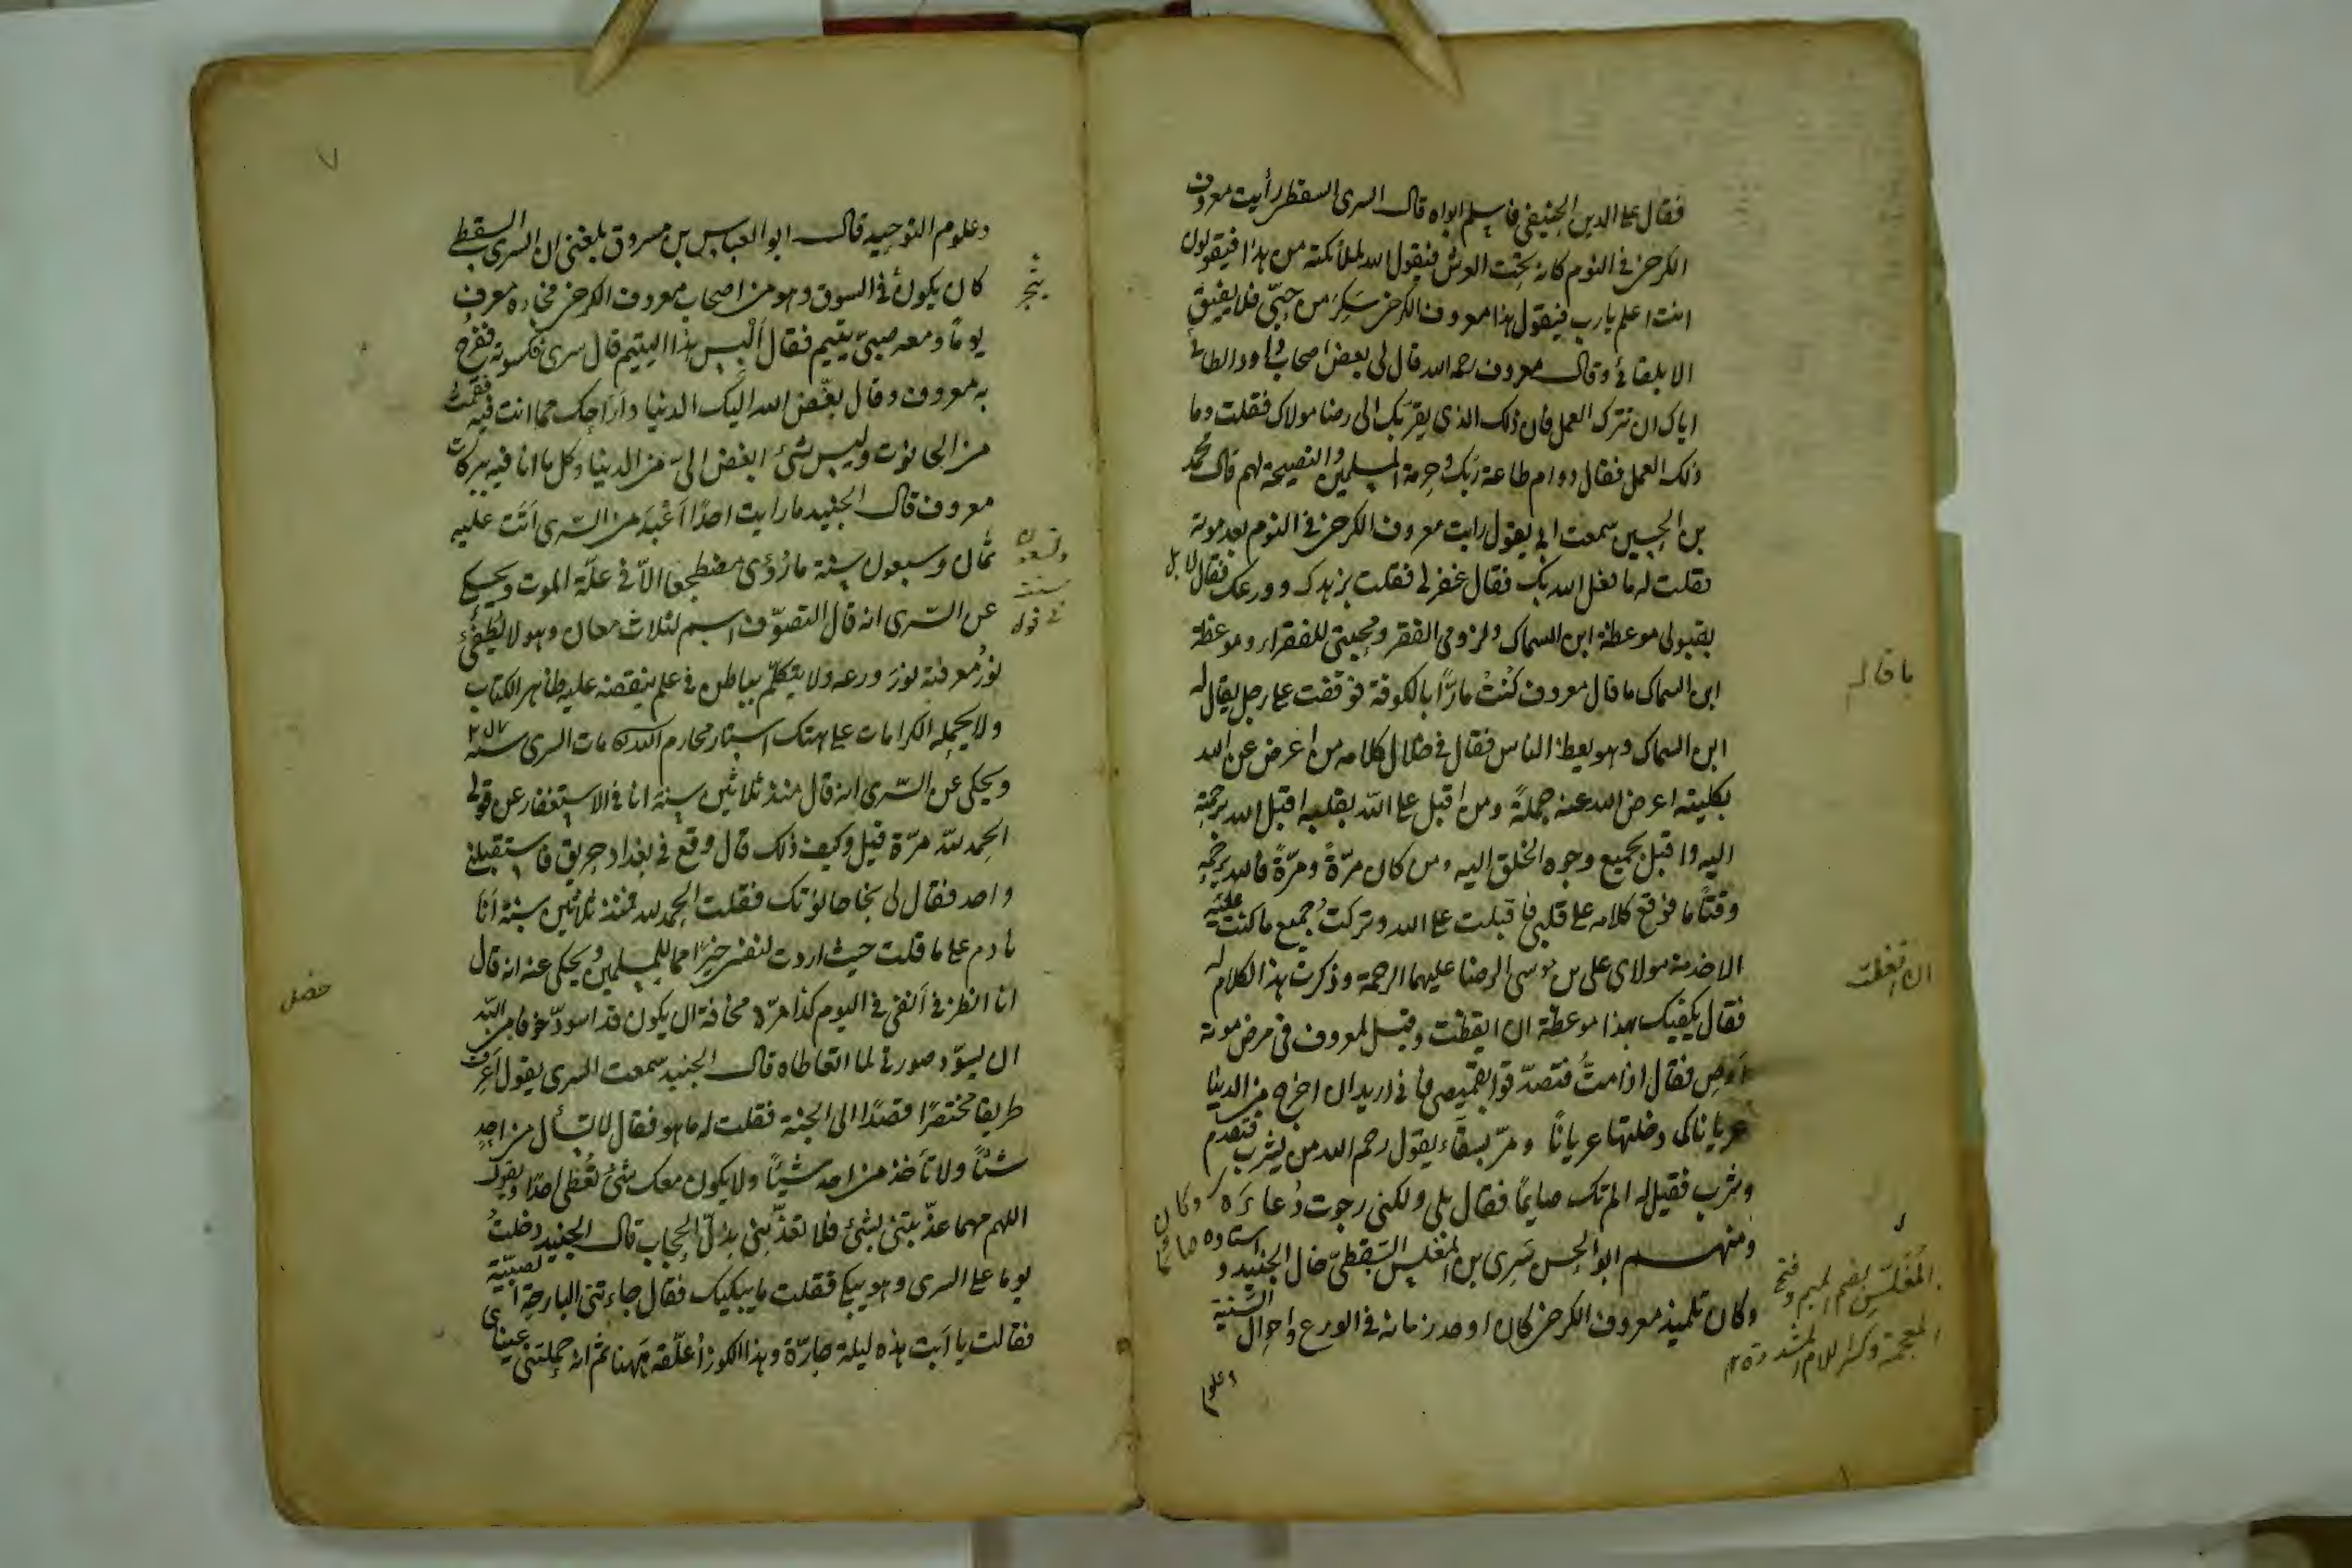 فقال على الدين الحنيفي فاسلم ابواه قال السرى السقطى رأيت معروف
الكرخى فى النوم كانه تحت العرش فيقول الله لملائكته من هذا فيقولون
انت اعلم يا رب فيقول هذا معروف الكرخى سَكِرَ من حبّى فلا يفيق
الا بلقائى وقال معروف رحمه الله قال لى بعض اصحاب داود الطائى
اياك ان تترك العمل فان ذلك الذى يقرّبك الى رضا مولاك فقلت وما
ذلك العمل فقال دوام طاعة ربّك وحرمة المسلمين والنصيحة لهم قال محمد
بن الحسين سمعت ابى يقول رايت معروف الكرخى فى النوم بعد موته
فقلت له ما فعل الله بك فقال غفر لى فقلت بزهدك وورعك فقال لا بل
بقبولى موعظة ابن السماك ولزومى الفقر ومحبتى للفقراء وموعظة
ابن السماك ما قال معروف كُنتُ مارًّا بالكوفة فوقفت على رجل يقال له
ابن السماك وهو يعظ الناس فقال فى خلال كلامه من اعرض عن الله
بكليته اعرض الله عنه جملةً ومن اقبل على الله بقلبه اقبل الله برحمته
اليه واقبل بجميع وجوه الخلق اليه ومن كان مرّةً ومرّةً فالله يرحمه
وقتًا ما فوقع كلامه على قلبى فاقبلت على الله وتركتُ جميع ما كنت عليه
الا خدمة مولاى على بن موسى الرضا عليهما الرحمة وذكرت هذا الكلام له
فقال يكفيك بهذا موعظة ان ايقظت وقيل لمعروف فى مرض موته
اَوصِ فقال اذا متُّ فتصدّقوا بقميصى فانى اريد ان اخرج من الدنيا
عريانا كما دخلتها عريانًا ومرّ بسقّاء يقول رحم الله من يشرب فتقدم
وشرب فقيل له الم تك صايمًا فقال بلى ولكنى رجوت دُعاءَه وكان
استاده صائمًا
ومنهم ابو الحسن سَرِى بن المغلّس السَّقطىّ خال الجنيد و
وكان تلميذ معروف الكرخى كان اوحد زمانه فى الورع واحوال السُّنّية
وعلوم
ما قاله
ان اتعظت
المُغَلِّس بضم الميم وفتح
المعجمة وكسر اللام المشددة
٧
وعلوم التوحيد قال ابو العباس بن مسروق بلغنى ان السرى السقطى
كان يكون فى السوق وهو من اصحاب معروف الكرخى فجاءه معروف
يومًا ومعه صبىّ يتيم فقال اَلْبِس هذا اليتيم قال سرى فكسوته ففرح
به معروف وقال بغّض الله اليك الدنيا واَرَاحك مما انت فيه فقمت
من الحانوت وليس شىء ابغض الىّ من الدنيا وكل ما انا فيه ببركات
معروف قال الجنيد ما رايت احدًا اَعْبَدَ من السَّرى اَتَت عليه
ثمان وسبعون سنة ما رُؤى مضطجعا الاّ فى علّة الموت ويحكى
عن السَّرى انه قال التصوّف اسم لثلاث معان وهو لا يُطفئ
نورُ معرفته نورَ ورعه ولا يتكلّم بباطن فى علم ينقضه عليه ظاهر الكتاب
ولا يحمله الكرامات على هتك استار محارم الله مات السرى سنة ٢٥٧
ويحكى عن السَّرى انه قال منذ ثلاثين سنة انا فى الاستغفار عن قولى
الحمد لله مرّة قيل وكيف ذلك قال وقع فى بغداد حريق فاستقبلنى
واحد فقال لى نجا حانوتك فقلت الحمد لله فمنذ ثلاثين سنة اَنا
نادم على ما قلت حيث اردت لنفسى خيرًا مما للمسلمين ويحكى عنه انه قال
انا انظر فى اَنفى فى اليوم كذا مرّة مخافة ان يكون قد اسودّ خوفا من الله
ان يسوّد صورتى لما اتعاطاه قال الجنيد سمعت السرى يقول اَعرِف
طريقا مختصرًا قصدًا الى الجنة فقلت له ما هو فقال لا تسأل من احدٍ
شئًا ولا تأخذ من احد شيئًا ولا يكون معك شئ تُعطى احدًا ويقول
اللهم مهما عذّبتنى بشئ فلا تعذّبنى بذلّ الحجاب قال الجنيد دخلتُ
يوما على السرى وهو يبكى فقلت ما يبكيك فقال جاءتنى البارحة الصبيّة
فقالت يا اَبت هذه ليلة حارّة وهذا الكوز اُعلّقه هٰهنا ثم انه حملتنى عيناى
وتسعون
خصل